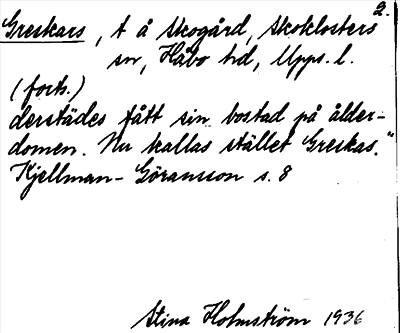 2.
Greskars, t å Skogård, Skoklosters
sn, Håbo hd, Upps. l.
(forts.)
derstädes fått sin bostad på ålder-
domen. Nu kallas stället Greskas."
Kjellman-Göransson s. 8
Stina Holmström 1936